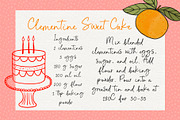 Clementine Sweet Cake
Ingredients
5 clementines
5 eggs
180 gr sugar
100 ml oil
200 gr flour
1 tbsp baking powder
Mix blended
clementines with eggs,
sugar, and oil. Add
flour and baking
powder. Pour into a
greased tin and bake at
180C for 30-35